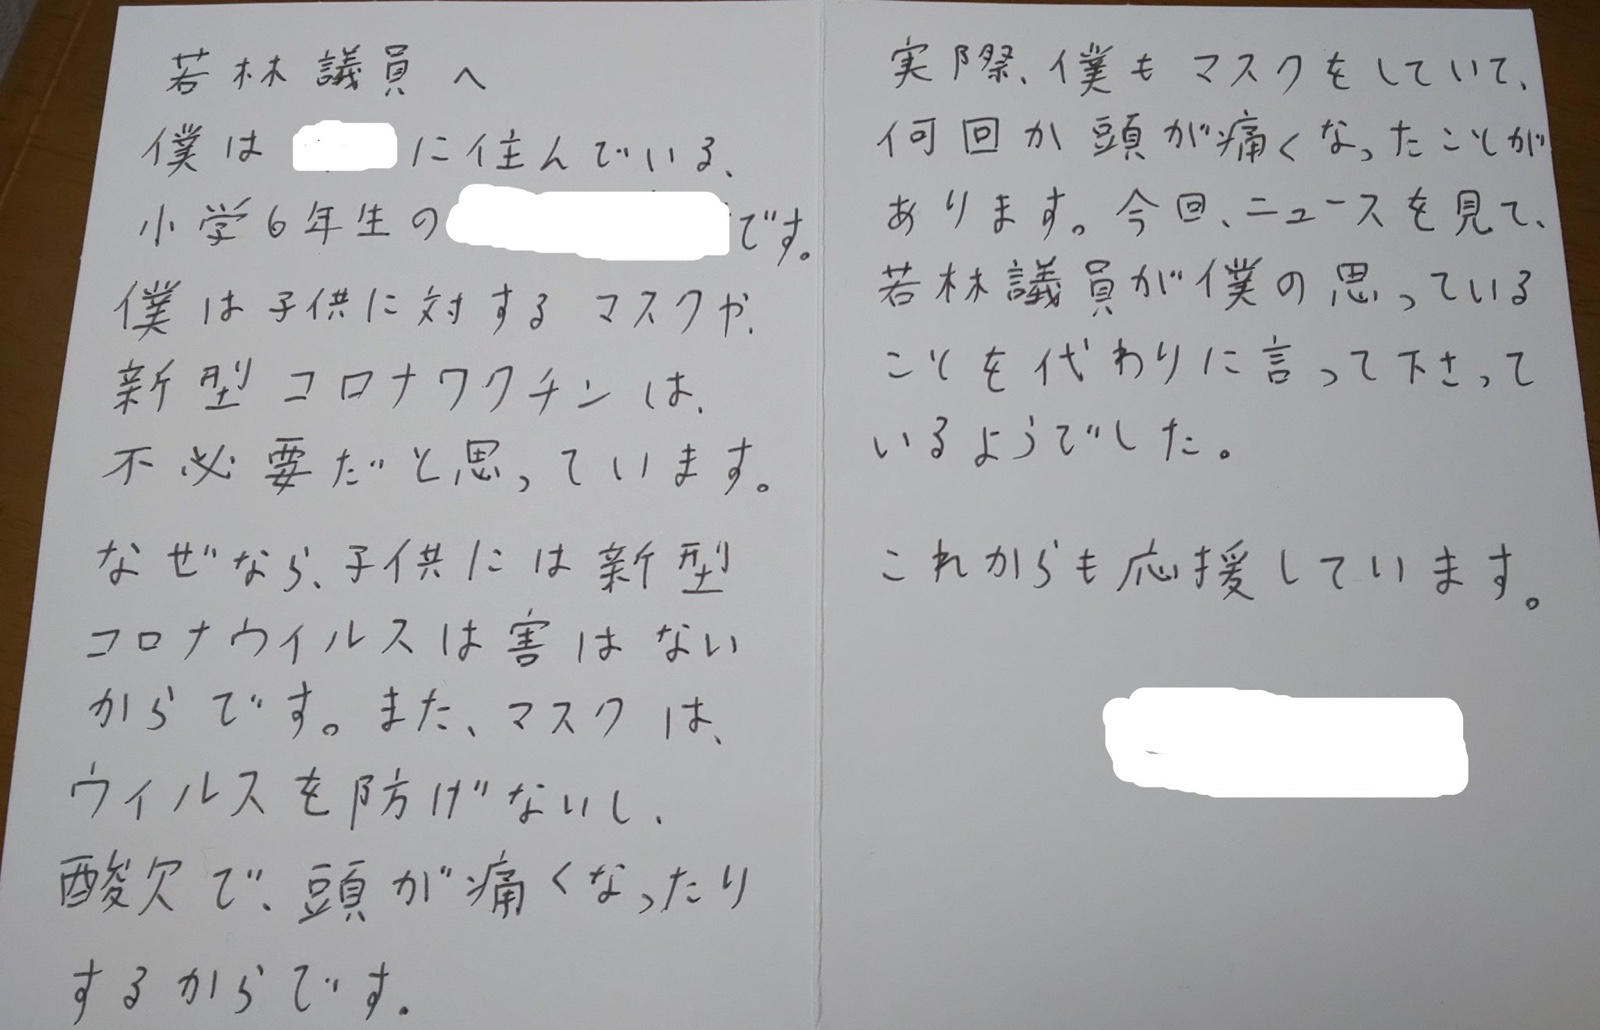 若林議員へ
僕は に住んでいる、
小学6年生の です。
僕は子供に対するマスクや、
新型コロナワクチンは、
不必要だと思っています。
なぜなら、子供には新型
コロナウィルスは害はない
からです。また、マスクは、
ウィルスを防げないし、
酸欠で、頭が痛くなったり
するからです。
実際、僕もマスクをしていて、
何回か頭が痛くなったことが
あります。今回、ニュースを見て、
若林議員が僕の思っている
ことを代わりに言って下さって
いるようでした。
これからも応援しています。